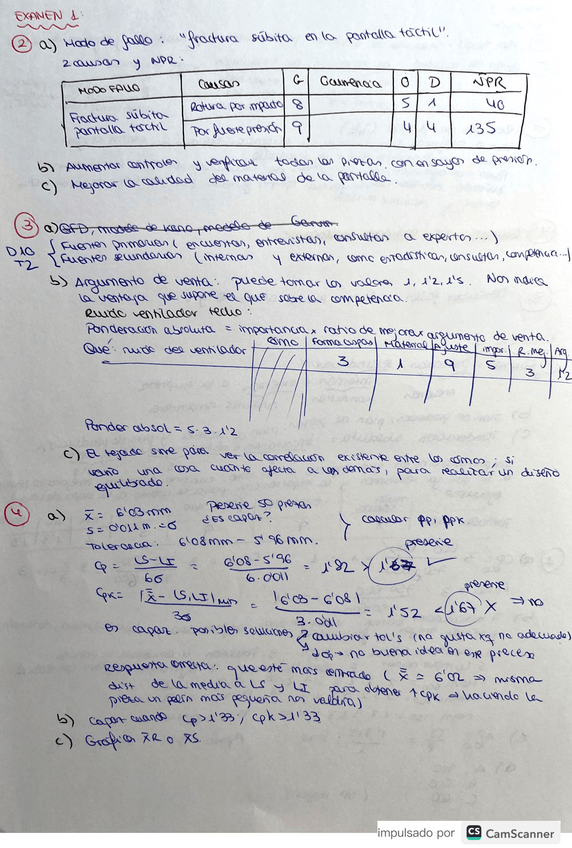 EXAMEN 1:
2 a) Modo de fallo: "fractura súbita en la pantalla táctil".
2 causas y NPR.
MODO FALLO Causas G Ocurrencia O D NPR
Fractura súbita pantalla táctil Rotura por impacto 8 5 1 40
Por fuerte presión 9 4 4 135
b) Aumentar controles y verificar todas las piezas con ensayos de presión.
c) Mejorar la calidad del material de la pantalla.
3 a) QFD, modelo de kano, modelo de
D10 { Fuentes primarias (encuestas, entrevistas, consultas a expertos...)
T2 { Fuentes secundarias (internas y externas, como estadísticas, consultas, competencia...)
b) Argumento de venta: puede tomar los valores 1, 1'2, 1'5. Nos indica
la ventaja que supone el que sobre la competencia.
Ruido ventilador techo:
Ponderación absoluta = importancia x ratio de mejora x argumento de venta.
Qué: ruido del ventilador Cómo Forma aspas Material Ajuste impor R. Mej Arg
3 1 9 5 3 1'2
Ponder absol = 5·3·1'2
c) El tejado sirve para ver la correlación existente entre los cómos; si
vario una cosa cuánto afecta a los demás, para realizar un diseño
equilibrado.
4 a) x̄ = 6'03 mm Preserie 50 piezas
S = 0'011 m. = σ ¿Es capaz? } calcular pp, ppk
Tolerancia: 6'08mm - 5'96 mm. preserie
Cp = LS-LI / 6σ = 6'08-5'96 / 6·0'011 = 1'82 > 1'67 ✓
Cpk = |x̄ - LS, LI| min / 3σ = |6'03 - 6'08| / 3·0'011 = 1'52 < 1'67 X ⇒ no preserie
es capaz. posibles soluciones cambiar tol's (no gusta xq no adecuado)
↓σp → no buena idea en ese proceso
Respuesta correcta: que esté más centrado (x̄ = 6'02 ⇒ misma
dist de la media a LS y LI para obtener ↑ cpk ⇒ haciendo la
pieza un pelín más pequeña nos valdría)
b) Capaz cuando cp > 1'33, cpk > 1'33
c) Gráfica x̄R o x̄S.
impulsado por CS CamScanner